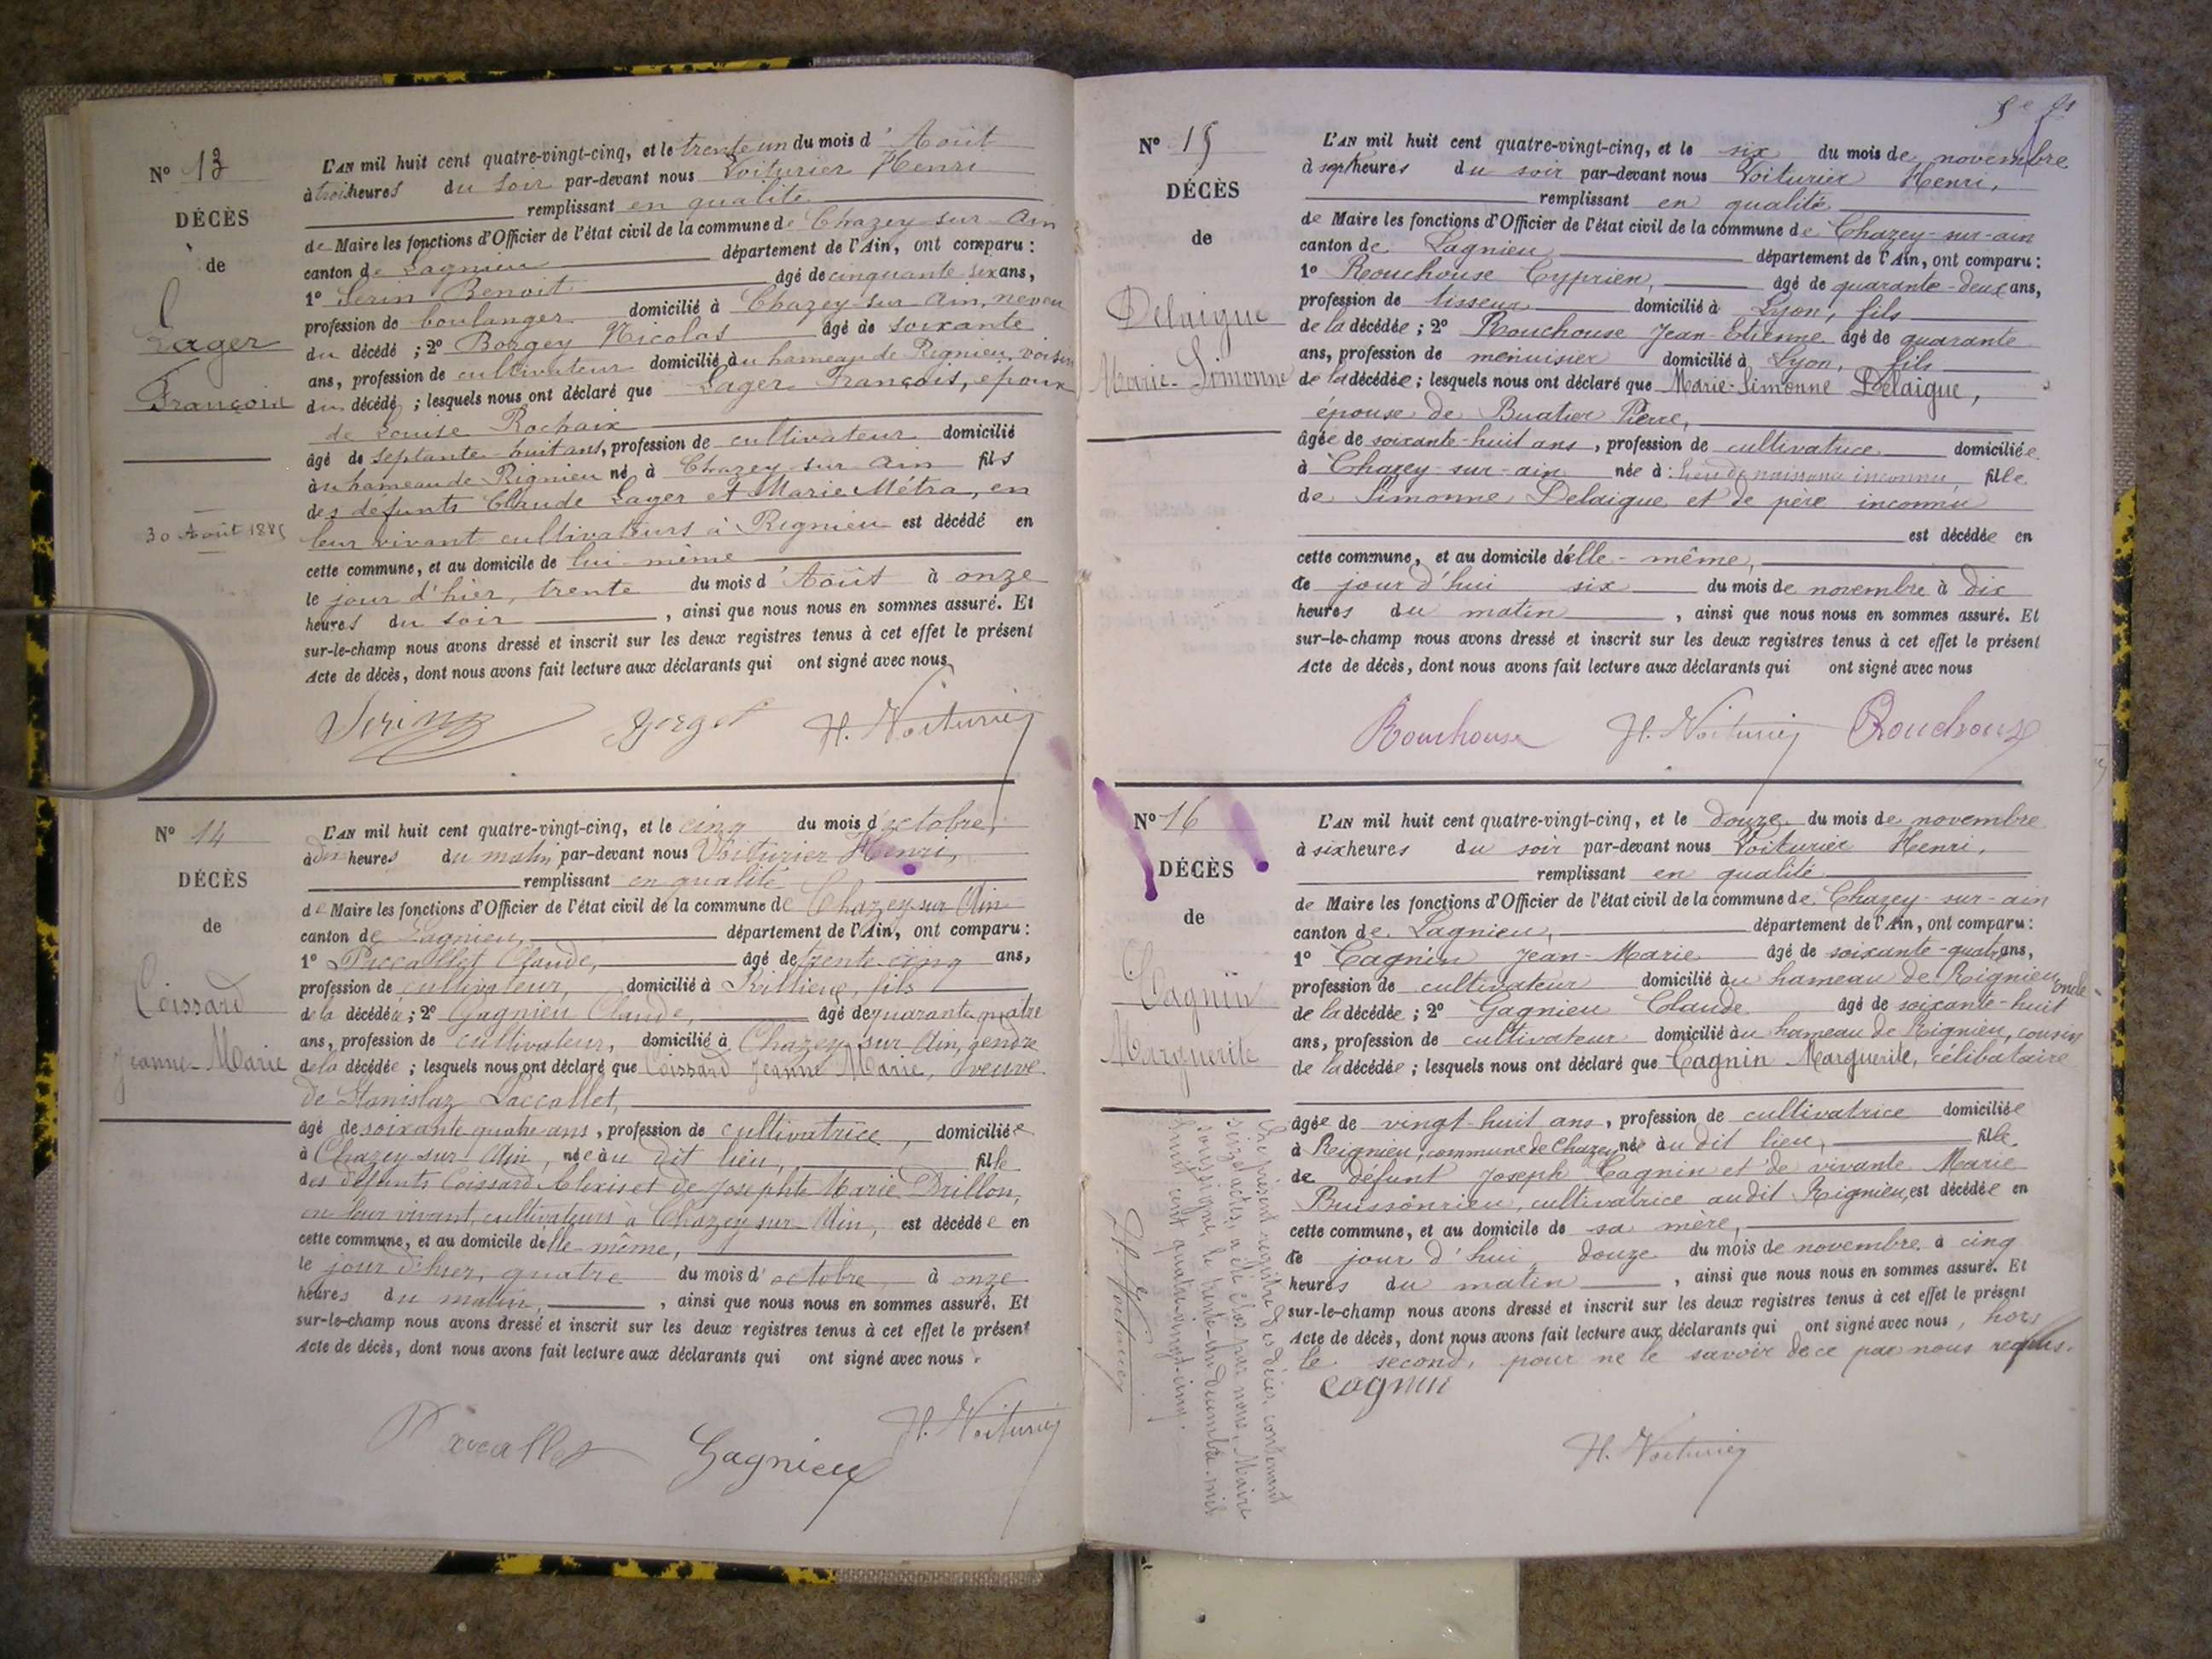 Nº 13
DÉCÈS
de
Lager
François
30 Août 1885
L'AN mil huit cent quatre-vingt-cinq, et le trente un du mois d'Août
à trois heures du soir par-devant nous Voiturier Henri
remplissant en qualité
de Maire les fonctions d'Officier de l'état civil de la commune de Chazey sur Ain
canton de Lagnieu département de l'Ain, ont comparu :
1º Serin Benoit âgé de cinquante six ans,
profession de boulanger domicilié à Chazey-sur Ain, neveu
du décédé ; 2º Borgey Nicolas âgé de soixante
ans, profession de cultivateur domicilié au hameau de Rignieu, voisin
du décédé ; lesquels nous ont déclaré que Lager François, époux
de Louise Rochaix
âgé de septante-huit ans, profession de cultivateur domicilié
au hameau de Rignieu né à Chazey-sur Ain fils
des défunts Claude Lager et Marie Métra, en
leur vivant cultivateurs à Rignieu est décédé en
cette commune, et au domicile de lui-même
le jour d'hier, trente du mois d'Août à onze
heures du soir , ainsi que nous nous en sommes assuré. Et
sur-le-champ nous avons dressé et inscrit sur les deux registres tenus à cet effet le présent
Acte de décès, dont nous avons fait lecture aux déclarants qui ont signé avec nous
Serin H. Voiturier
Nº 14
DÉCÈS
de
Coissard
Jeanne-Marie
L'AN mil huit cent quatre-vingt-cinq, et le cinq du mois d'octobre,
à dix heures du matin par-devant nous Voiturier Henri,
remplissant en qualité
de Maire les fonctions d'Officier de l'état civil de la commune de Chazey-sur-Ain
canton de Lagnieu, département de l'Ain, ont comparu :
1º Claude, âgé de trente-cinq ans,
profession de cultivateur, domicilié à fils
de la décédée ; 2º Gagnieu Claude, âgé de quarante quatre
ans, profession de cultivateur, domicilié à Chazey-sur Ain, gendre
de la décédée ; lesquels nous ont déclaré que Coissard Jeanne Marie, veuve
de Stanislaz
âgé de soixante quatre ans, profession de cultivatrice, domiciliée
à Chazey-sur-Ain, née au dit lieu, fille
des défunts Coissard Alexis et de Josephte Marie Drillon,
en leur vivant, cultivateurs à Chazey-sur-Ain, est décédée en
cette commune, et au domicile d'elle-même,
le jour d'hier, quatre du mois d'octobre, à onze
heures du matin, , ainsi que nous nous en sommes assuré. Et
sur-le-champ nous avons dressé et inscrit sur les deux registres tenus à cet effet le présent
Acte de décès, dont nous avons fait lecture aux déclarants qui ont signé avec nous.
Gagnieu H. Voiturier
Nº 15
DÉCÈS
de
Delaigue
Marie-Simonne
L'AN mil huit cent quatre-vingt-cinq, et le six du mois de novembre
à sept heures du soir par-devant nous Voiturier Henri,
remplissant en qualité
de Maire les fonctions d'Officier de l'état civil de la commune de Chazey-sur-ain
canton de Lagnieu département de l'Ain, ont comparu :
1º Rouchouse Cyprien, âgé de quarante-deux ans,
profession de tisseur domicilié à Lyon, fils
de la décédée ; 2º Rouchouse Jean-Etienne âgé de quarante
ans, profession de menuisier domicilié à Lyon, fils
de la décédée ; lesquels nous ont déclaré que Marie-Simonne Delaigue,
épouse de Buatier Pierre,
âgée de soixante-huit ans, profession de cultivatrice domiciliée
à Chazey-sur-ain née à lieu de naissance inconnu, fille
de Simonne Delaigue et de père inconnu
est décédée en
cette commune, et au domicile d'elle-même,
ce jour d'hui six du mois de novembre à dix
heures du matin , ainsi que nous nous en sommes assuré. Et
sur-le-champ nous avons dressé et inscrit sur les deux registres tenus à cet effet le présent
Acte de décès, dont nous avons fait lecture aux déclarants qui ont signé avec nous
Rouchouse H. Voiturier Rouchouse
Nº 16
DÉCÈS
de
Cagnin
Marguerite
L'AN mil huit cent quatre-vingt-cinq, et le douze du mois de novembre
à six heures du soir par-devant nous Voiturier Henri,
remplissant en qualité
de Maire les fonctions d'Officier de l'état civil de la commune de Chazey-sur-ain
canton de Lagnieu, département de l'Ain, ont comparu :
1º Cagnin Jean-Marie âgé de soixante-quatre ans,
profession de cultivateur domicilié au hameau de Rignieu, oncle
de la décédée ; 2º Gagnieu Claude âgé de soixante-huit
ans, profession de cultivateur domicilié au hameau de Rignieu, cousin
de la décédée ; lesquels nous ont déclaré que Cagnin Marguerite, célibataire
âgée de vingt-huit ans, profession de cultivatrice domiciliée
à Reignieu, commune de Chazey née au dit lieu, fille
de défunt Joseph Cagnin et de vivante Marie
Buissonrieu, cultivatrice audit Rignieu, est décédée en
cette commune, et au domicile de sa mère,
ce jour d'hui, douze du mois de novembre à cinq
heures du matin , ainsi que nous nous en sommes assuré. Et
sur-le-champ nous avons dressé et inscrit sur les deux registres tenus à cet effet le présent
Acte de décès, dont nous avons fait lecture aux déclarants qui ont signé avec nous, hors
le second, pour ne le savoir de ce par nous requis.
Cagnin
H. Voiturier
Le présent registre des décès, contenant
seize actes, a été clos par nous, Maire
soussigné, le trente-un décembre mil
huit cent quatre-vingt-cinq.
H. Voiturier